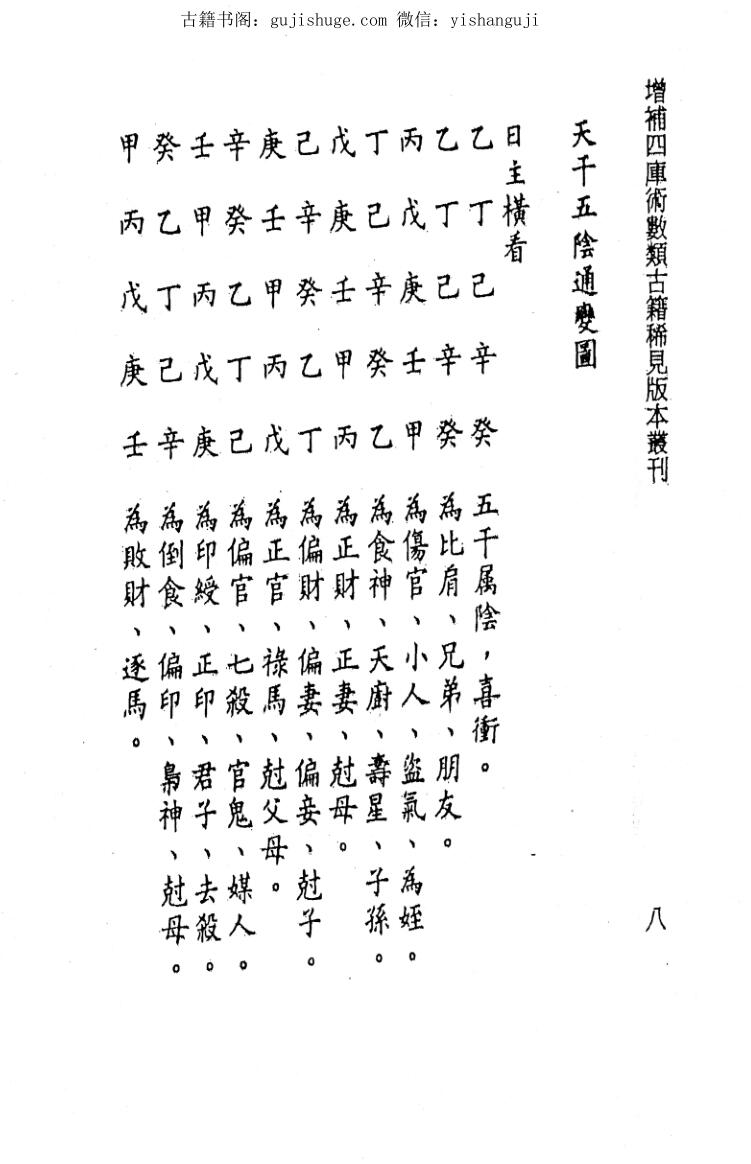 古籍书阁：gujishuge.com 微信：yishanguji
增補四庫術數類古籍稀見版本叢刊
八
天干五陰通變圖
日主橫看
乙丁己辛癸 五干属陰，喜衝。
乙丁己辛癸 為比肩、兄弟、朋友。
丙戊庚壬甲 為傷官、小人、盜氣、為姪。
丁己辛癸乙 為食神、天廚、壽星、子孫。
戊庚壬甲丙 為正財、正妻、尅母。
己辛癸乙丁 為偏財、偏妻、偏妾、尅子。
庚壬甲丙戊 為正官、祿馬、尅父母。
辛癸乙丁己 為偏官、七殺、官鬼、媒人。
壬甲丙戊庚 為印綬、正印、君子、去殺。
癸乙丁己辛 為倒食、偏印、梟神、尅母。
甲丙戊庚壬 為敗財、逐馬。